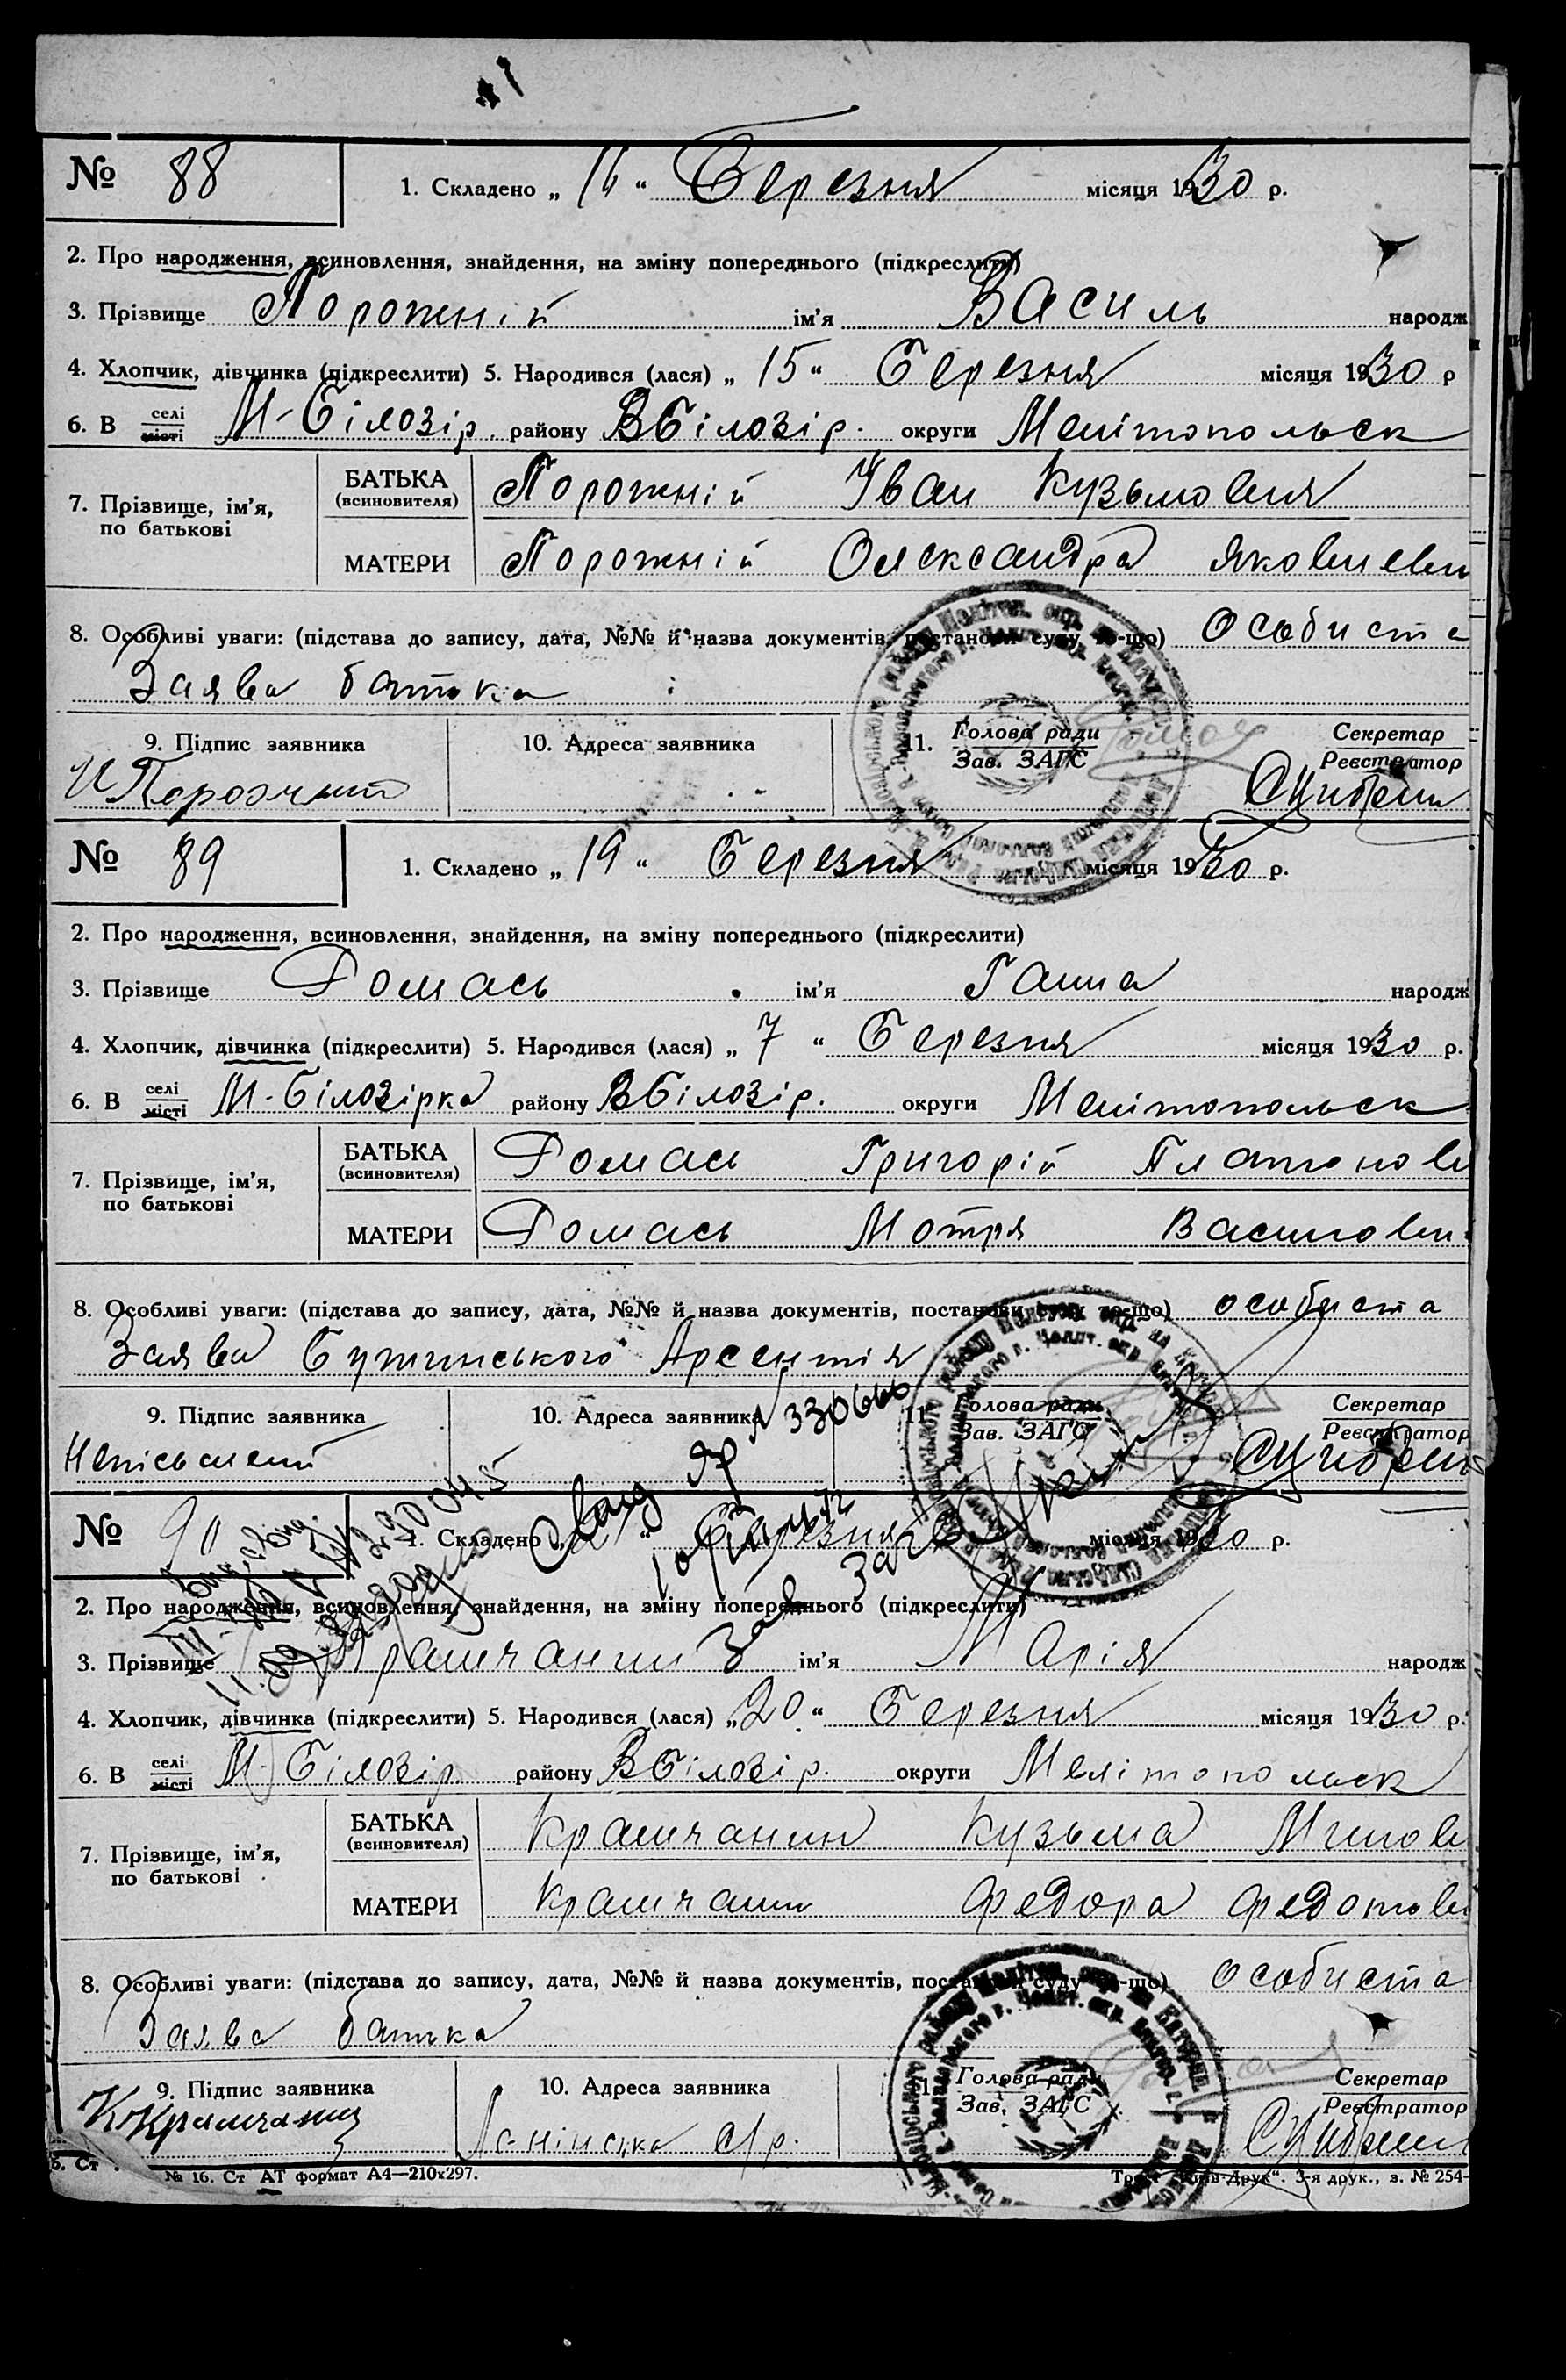 № 88 1. Складено „ 16 “ Березня місяця 1930 р.
2. Про народження, всиновлення, знайдення, на зміну попереднього (підкреслити)
3. Прізвище Порожній ім’я Василь народж
4. Хлопчик, дівчинка (підкреслити) 5. Народився (лася) „ 15 “ Березня місяця 1930 р
6. В селі місті М-Білозір. району ВБілозір. округи Мелітопольск
7. Прізвище, ім’я, по батькові
БАТЬКА (всиновителя) Порожній Іван Кузьмович
МАТЕРИ Порожній Олександра Яковлевн
8. Особливі уваги: (підстава до запису, дата, №№ й назва документів, постанови суду то-що) Особиста
Заява батька
9. Підпис заявника 10. Адреса заявника 11. Голова ради Зав. ЗАГС Секретар Реєстратор
И Порожний
№ 89 1. Складено „ 19 “ Березня місяця 1930 р.
2. Про народження, всиновлення, знайдення, на зміну попереднього (підкреслити)
3. Прізвище Ромась ім’я Ганна народж
4. Хлопчик, дівчинка (підкреслити) 5. Народився (лася) „ 7 “ Березня місяця 1930 р.
6. В селі місті М-Білозірка району ВБілозір. округи Мелітопольск
7. Прізвище, ім’я, по батькові
БАТЬКА (всиновителя) Ромась Григорій Платонов
МАТЕРИ Ромась Мотря Василовн.
8. Особливі уваги: (підстава до запису, дата, №№ й назва документів, постанови суду то-що) особиста
Заява Арсентія
9. Підпис заявника 10. Адреса заявника 330666 11. Голова ради Зав. ЗАГС Секретар Реєстратор
Неписьмений
№ 90 1. Складено „ “ Березня місяця 1930 р.
2. Про народження, всиновлення, знайдення, на зміну попереднього (підкреслити)
3. Прізвище Крамчанин ім’я Марія народж
4. Хлопчик, дівчинка (підкреслити) 5. Народився (лася) „ 20 “ Березня місяця 1930 р.
6. В селі місті М-Білозір. району ВБілозір. округи Мелітопольск
7. Прізвище, ім’я, по батькові
БАТЬКА (всиновителя) Крамчанин Кузьма
МАТЕРИ Крамчанин Федора Федотовн
8. Особливі уваги: (підстава до запису, дата, №№ й назва документів, постанови суду то-що) особиста
Заява батька
9. Підпис заявника 10. Адреса заявника 11. Голова ради Зав. ЗАГС Секретар Реєстратор
К Крамчанин с/р.
№ 16. Ст АТ формат А4—210х297. Трест „Київ-Друк“. 3-я друк., з. № 254-